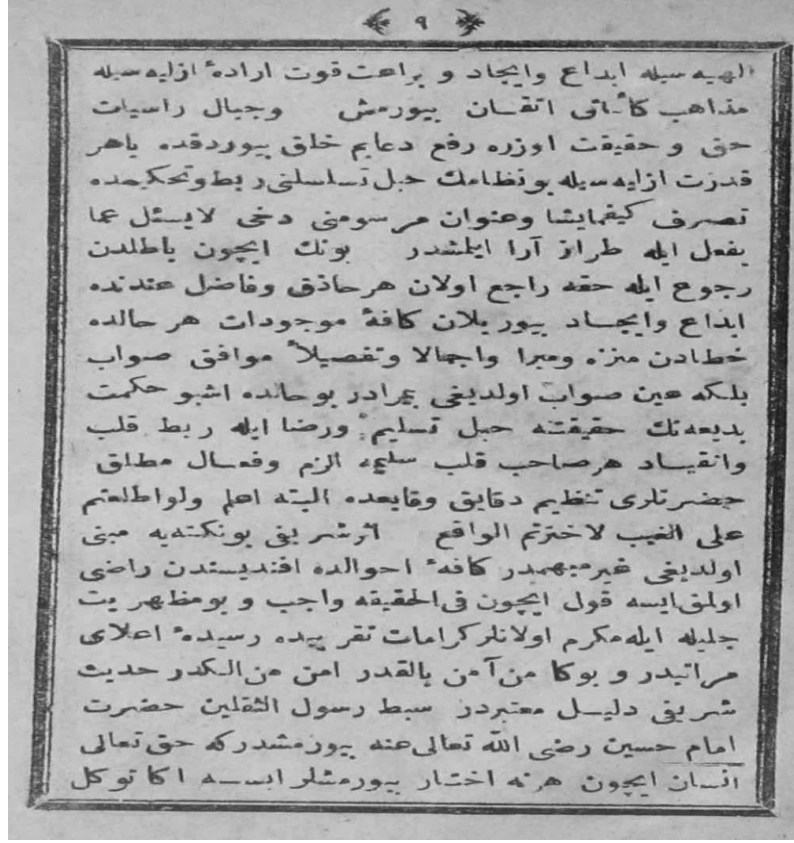 ٩
الهیه سیله ابداع وایجاد و براعت قوت ارادهٔ ازلیه سیله
مذاهب کائناتی اتقان بیورمش وجبال راسیات
حق و حقیقت اوزره رفع دعایم خلق بیوردقده باهر
قدرت ازلیه سیله بونظامك حبل تسلسلنی ربط وتحکیمده
تصرف کیفمایشا وعنوان مرسومنی دخی لایسئل عما
یفعل ایله طراز آرا ایلمشدر بونك ایچون باطلدن
رجوع ایله حقه راجع اولان هر حاذق وفاضل عندنده
ابداع وایجاد بیوریلان کافهٔ موجودات هر حالده
خطادن منزه ومبرا واجمالا وتفصیلاً موافق صواب
بلکه عین صواب اولدیغی بمرادر بوحالده اشبو حکمت
بدیعه نك حقیقتنه حبل تسلیم ورضا ایله ربط قلب
وانقیاد هر صاحب قلب سلیمه الزم وفعال مطلق
حضرتلری تنظیم دقایق وقایعده البته اعلم ولواطلعتم
علی الغیب لاخترتم الواقع اثر شریفی بونکته یه مبنی
اولدیغی غیر مبهمدر کافهٔ احوالده افندیسندن راضی
اولمق ایسه قول ایچون فی الحقیقه واجب و بومظهریت
جلیله ایله مکرم اولانلر کرامات تقربیده رسیدهٔ اعلای
مراتبدر و بوکا من آمن بالقدر امن من الکدر حدیث
شریفی دلیل معتبردر سبط رسول الثقلین حضرت
امام حسین رضی الله تعالی عنه بیورمشدرکه حق تعالی
انسان ایچون هر نه اختیار بیورمشلر ایسه اکا توکل